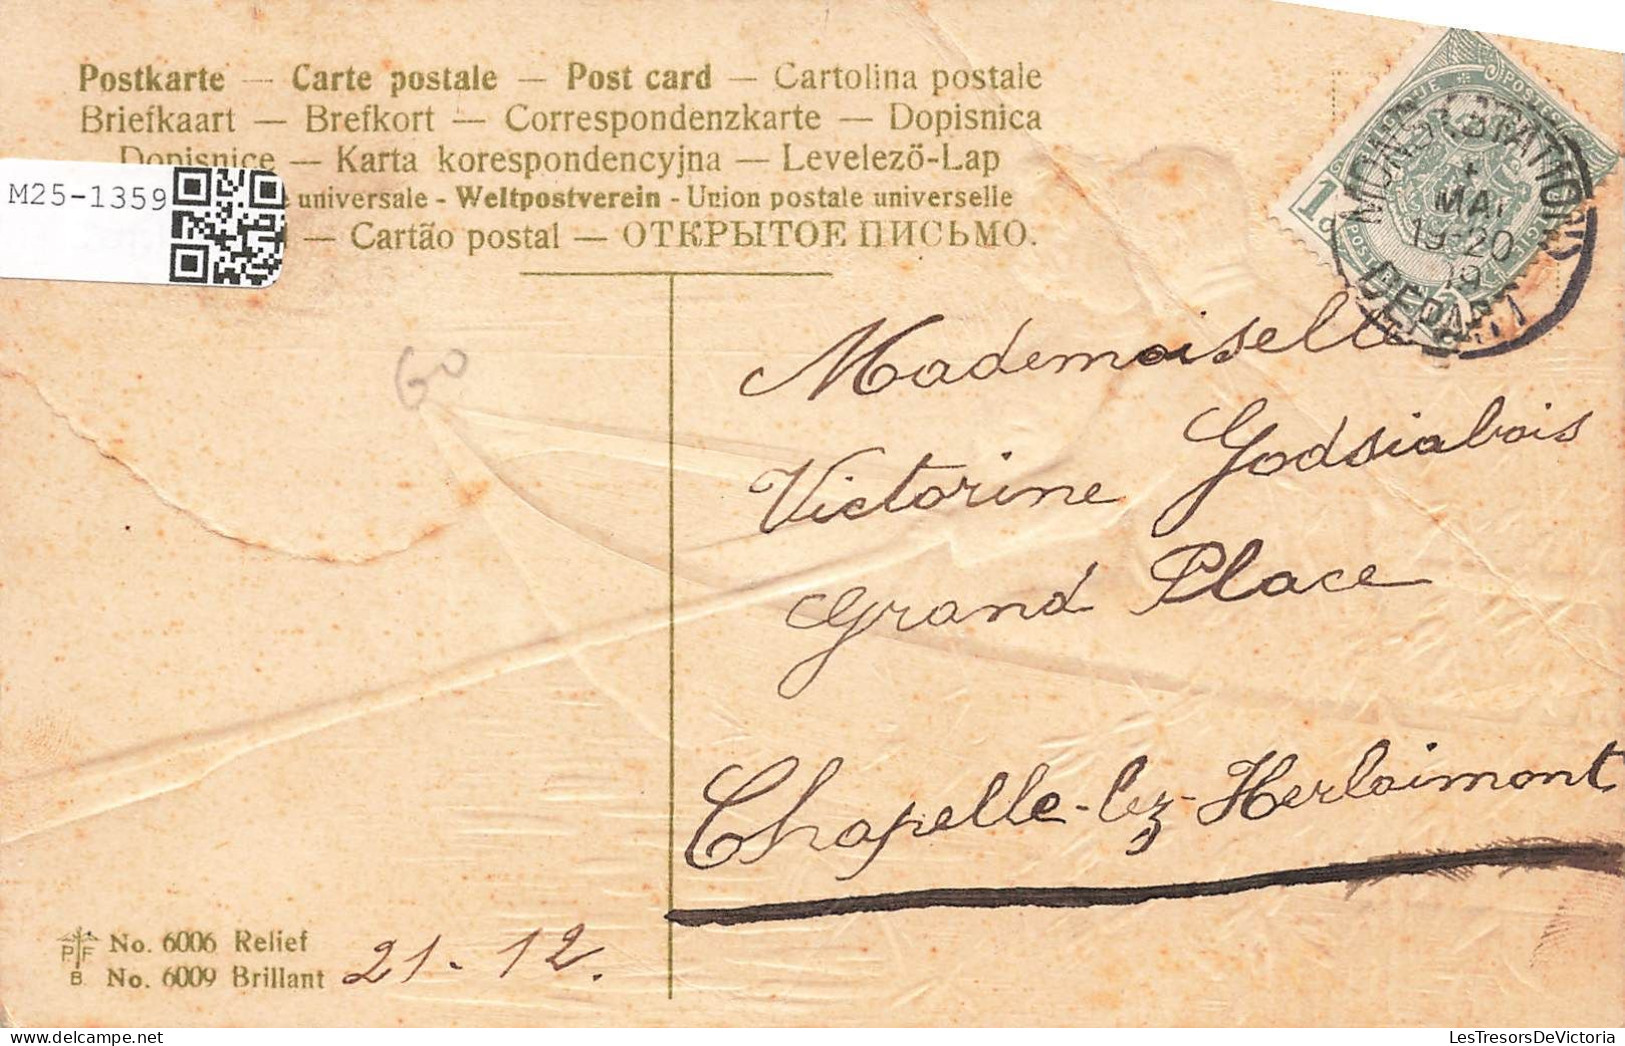 Postkarte — Carte postale — Post card — Cartolina postale
Briefkaart — Brefkort — Correspondenzkarte — Dopisnica
Dopisnice — Karta korespondencyjna — Levelező-Lap
universale - Weltpostverein - Union postale universelle
— Cartão postal — ОТКРЫТОЕ ПИСЬМО.
M25-1359
MONS (STATION)
1
MAI
19-20
19
DEPART
1
60
Mademoiselle
Victorine Godsiabois
Grand Place
Chapelle-lez-Herlaimont
P F
B.
No. 6006 Relief
No. 6009 Brillant
21 - 12.
LesTresorsDeVictoria
delcampe.net